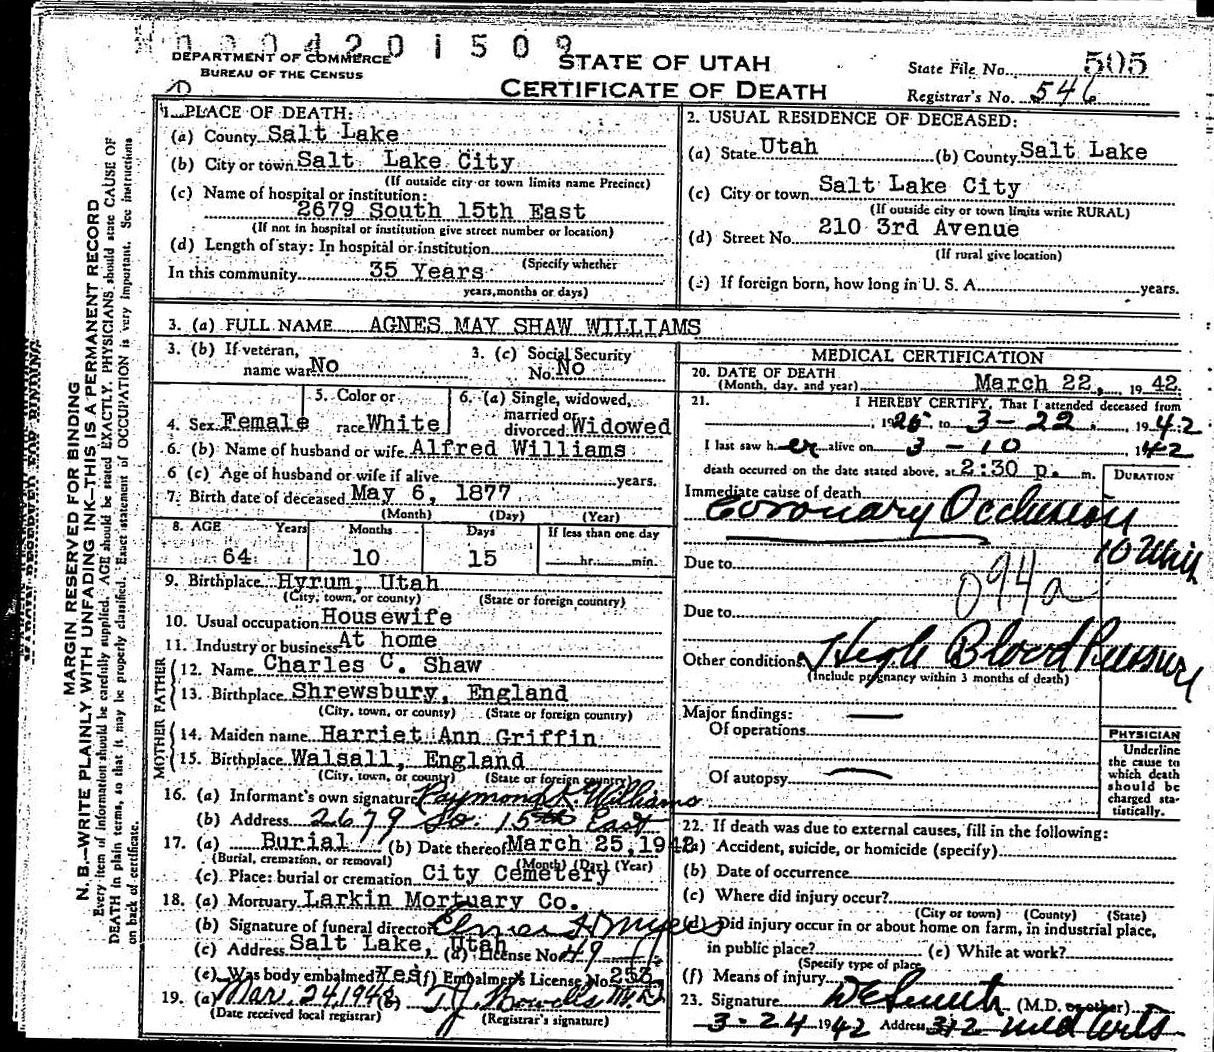 0004201509
DEPARTMENT OF COMMERCE
BUREAU OF THE CENSUS
STATE OF UTAH
CERTIFICATE OF DEATH
State File No. 505
Registrar's No. 546
MARGIN RESERVED FOR BINDING
N. B.—WRITE PLAINLY WITH UNFADING INK—THIS IS A PERMANENT RECORD
Every item of information should be carefully supplied. AGE should be stated EXACTLY. PHYSICIANS should state CAUSE OF
DEATH in plain terms, so that it may be properly classified. Exact statement of OCCUPATION is very important. See instructions
on back of certificate.
1. PLACE OF DEATH:
(a) County Salt Lake
(b) City or town Salt Lake City
(If outside city or town limits name Precinct)
(c) Name of hospital or institution:
2679 South 15th East
(If not in hospital or institution give street number or location)
(d) Length of stay: In hospital or institution
(Specify whether
In this community 35 Years
years, months or days)
2. USUAL RESIDENCE OF DECEASED:
(a) State Utah (b) County Salt Lake
(c) City or town Salt Lake City
(If outside city or town limits write RURAL)
(d) Street No. 210 3rd Avenue
(If rural give location)
(e) If foreign born, how long in U. S. A. years.
3. (a) FULL NAME AGNES MAY SHAW WILLIAMS
3. (b) If veteran, name war No
3. (c) Social Security No. No
4. Sex Female
5. Color or race White
6. (a) Single, widowed, married or divorced Widowed
6. (b) Name of husband or wife Alfred Williams
6 (c) Age of husband or wife if alive years.
7. Birth date of deceased May 6, 1877
(Month) (Day) (Year)
8. AGE Years Months Days If less than one day
64 10 15 hr. min.
9. Birthplace Hyrum, Utah
(City, town, or county) (State or foreign country)
10. Usual occupation Housewife
11. Industry or business At home
FATHER
12. Name Charles C. Shaw
13. Birthplace Shrewsbury, England
(City, town, or county) (State or foreign country)
MOTHER
14. Maiden name Harriet Ann Griffin
15. Birthplace Walsall, England
(City, town, or county) (State or foreign country)
16. (a) Informant's own signature Raymond K. Williams
(b) Address 2679 So. 15th East
17. (a) Burial (b) Date thereof March 25, 1942
(Burial, cremation, or removal) (Month) (Day) (Year)
(c) Place: burial or cremation City Cemetery
18. (a) Mortuary Larkin Mortuary Co.
(b) Signature of funeral director Elmer
(c) Address Salt Lake, Utah (d) License No. 49
(e) Was body embalmed Yes (f) Embalmer's License No. 253
19. (a) Mar. 24, 1942 T.J. Howells M.D.
(Date received local registrar) (Registrar's signature)
MEDICAL CERTIFICATION
20. DATE OF DEATH
(Month, day, and year) March 22, 1942.
21. I HEREBY CERTIFY, That I attended deceased from
1926 to 3-22, 1942
I last saw her alive on 3-10 1942
death occurred on the date stated above, at 2:30 p. m.
DURATION
Immediate cause of death
Coronary Occlusion
10 Min
Due to
094a
Due to
Other conditions High Blood Pressure
(Include pregnancy within 3 months of death)
Major findings: —
Of operations
Of autopsy —
PHYSICIAN
Underline
the cause to
which death
should be
charged sta-
tistically.
22. If death was due to external causes, fill in the following:
(a) Accident, suicide, or homicide (specify)
(b) Date of occurrence
(c) Where did injury occur?
(City or town) (County) (State)
(d) Did injury occur in or about home on farm, in industrial place,
in public place? (e) While at work?
(Specify type of place
(f) Means of injury
23. Signature (M.D. or other)
3-24 1942 Address 312 Med Arts